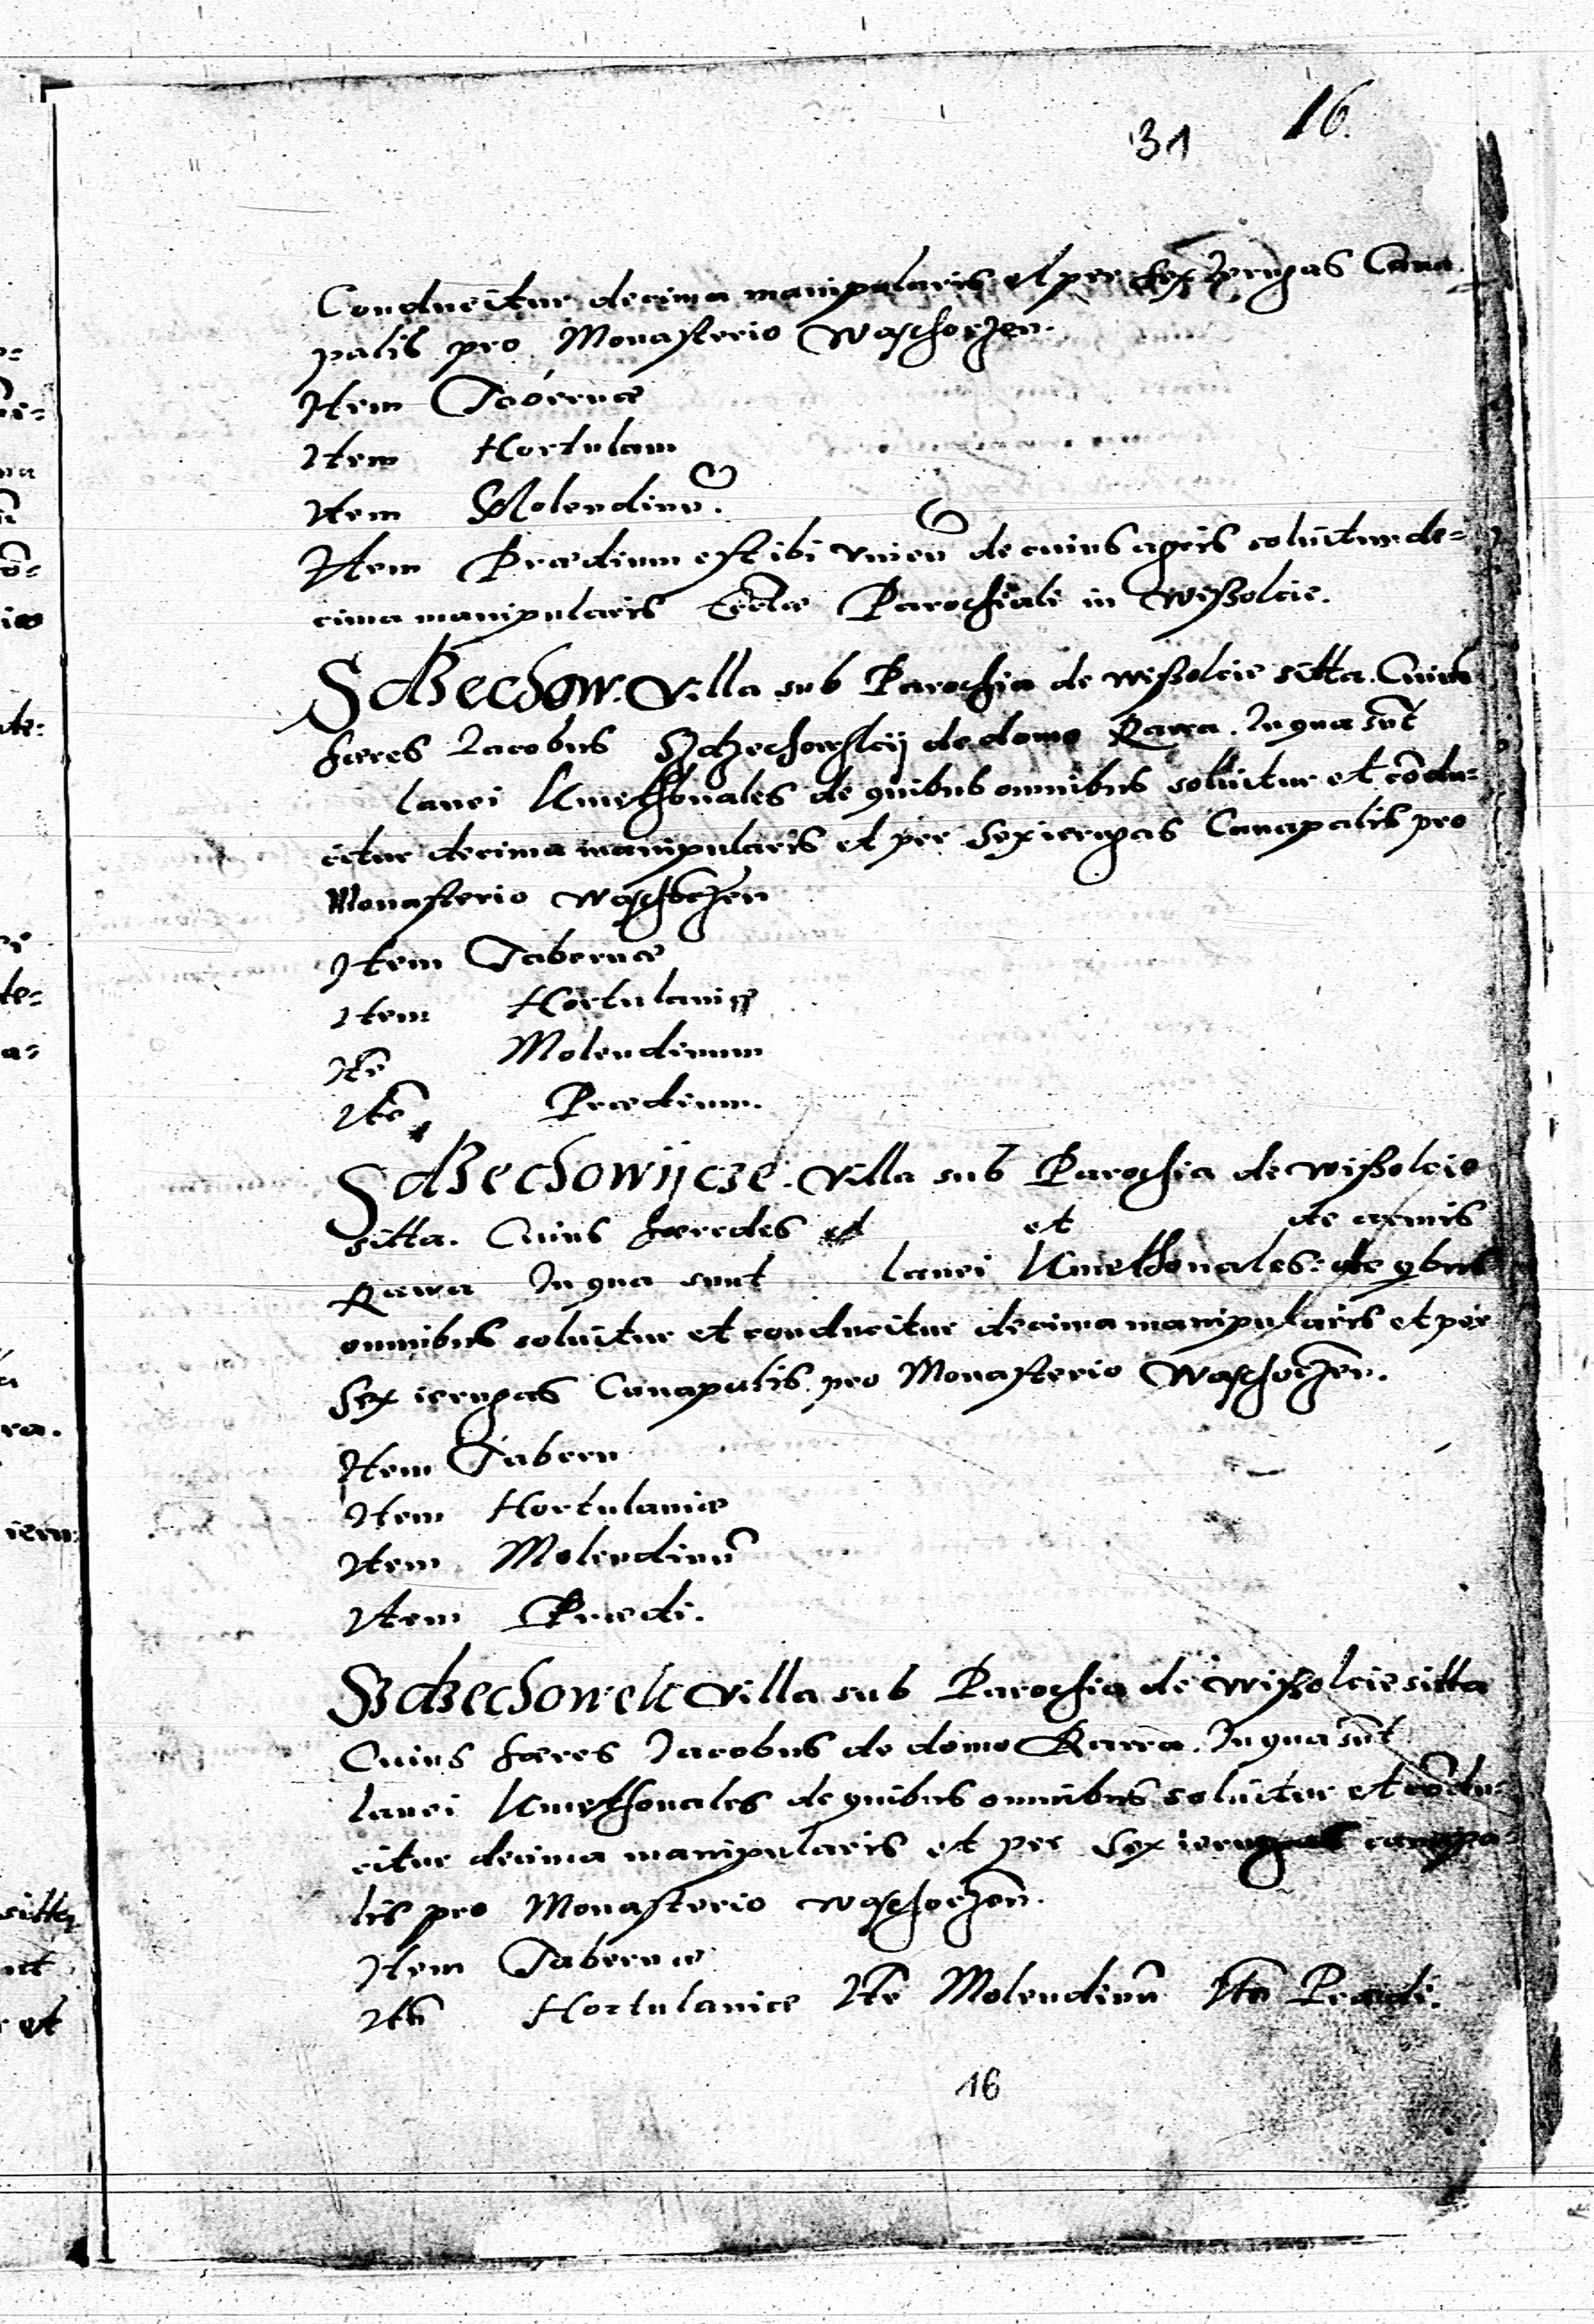 31 16.
Conducitur decima manipularis et per sex ierugas Cana
palis pro Monasterio Waschorzen.
Item Tabernæ
Item Hortulani
Item Molendinū.
Item Prædium est ibi vnicū de cuius agris soluitur de-
cima manipularis Eccłæ Parochiali in Wißokie.
Sdzechow. Villa sub Parochia de Wißokie sitta. Cuius
hæres Jacobus Szdzechowskij de domo Rawa. In qua sūt
lanei Kmethonales de quibus omnibus soluitur et cōdu-
citur decima manipularis et per sex ierugas Canapalis pro
Monasterio Waschorzen
Item Tabernæ
Item Hortulaniæ
Itē Molendinum
Itē Prædium.
Sdzechowijcze. Villa sub Parochia de Wißokie
sitta. Cuius hæredes et et de armis
Rawa In qua sunt lanei Kmethonales: de qbus
omnibus soluitur et conducitur decima manipularis et per
sex ierugas Canapalis pro Monasterio Waschorzen.
Item Tabern
Item Hortulaniæ
Item Molendinū
Item Prædi.
Szdzechowek Villa sub Parochia de Wißokie sitta
Cuius hæres Jacobus de domo Rawa. In qua sūt
lanei Kmethonales de quibus omnibus soluitur et cōdu-
citur decima manipularis et per sex ierugas canapa-
lis pro Monasterio Waschorzen.
Item Tabernæ
Itē Hortulaniæ Itē Molendinū Itē Prædi.
16